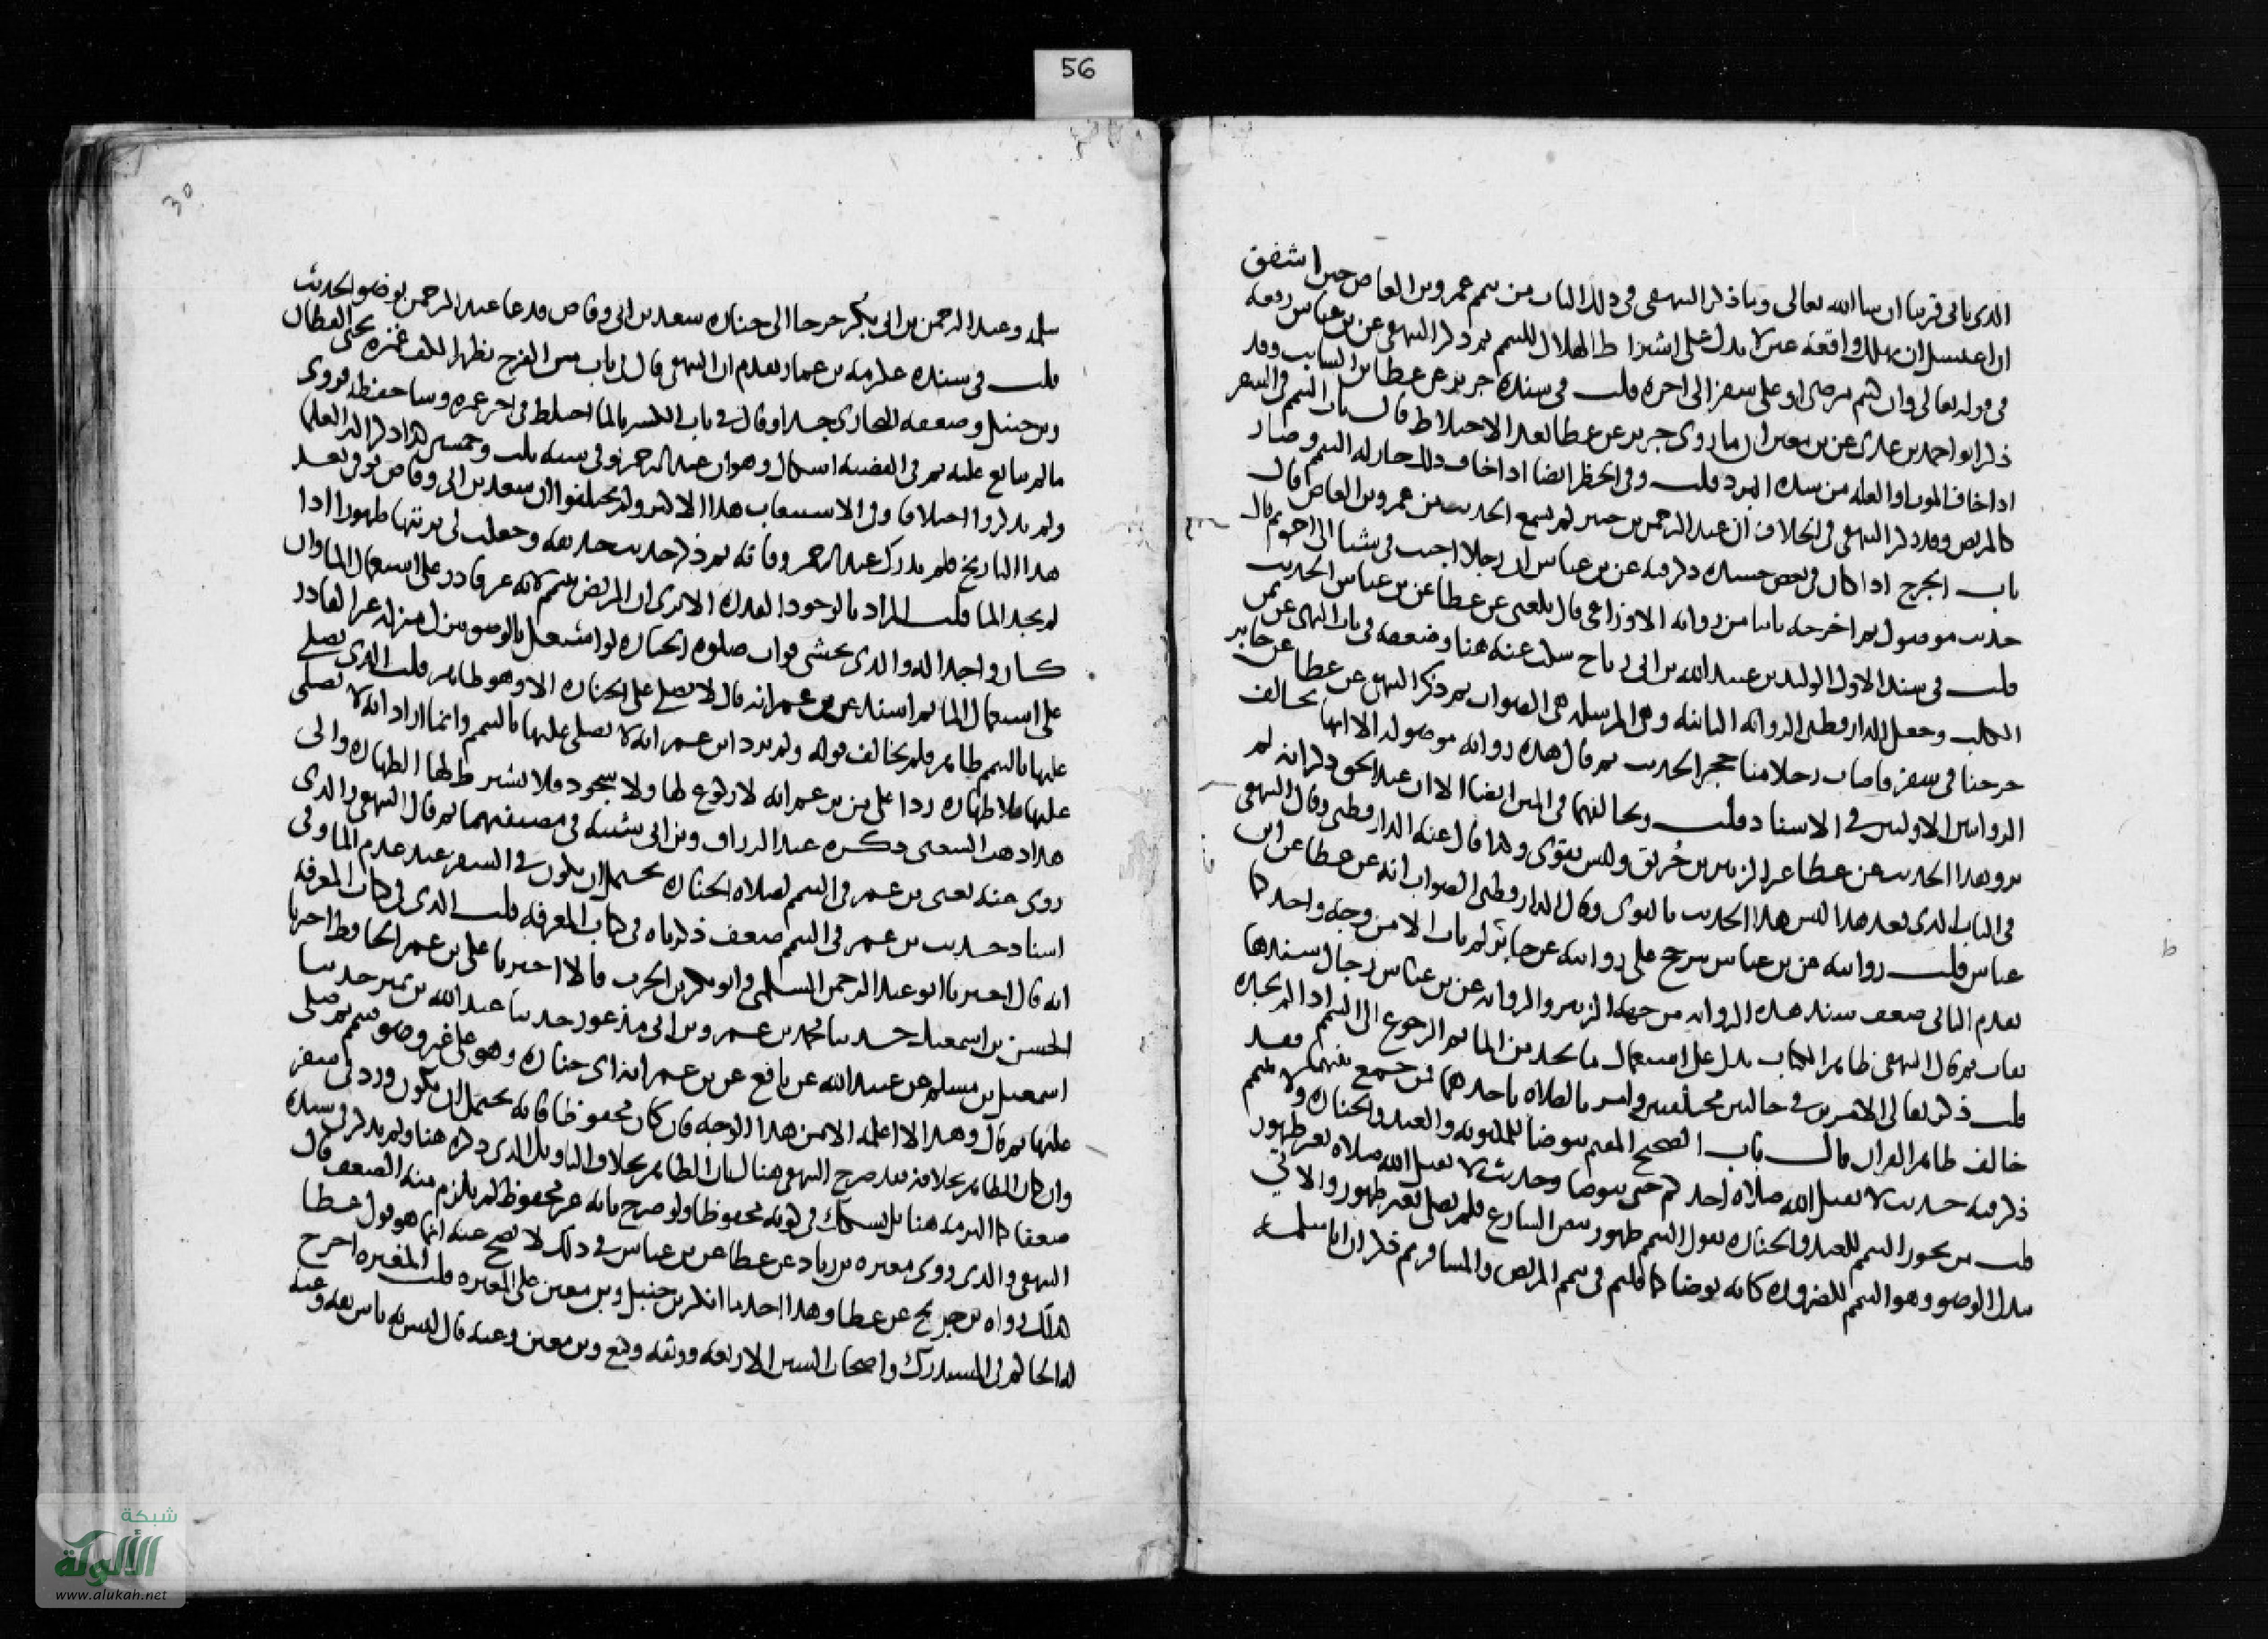 56
الذي ياتي قريبا ان شا الله تعالى وما ذكر البيهقي في ذلك الباب من تيمم عمرو بن العاص حين اشفق
ان اغتسل ان يهلك واقعة عين لا تدل على اشتراط الهلاك للتيمم ثم ذكر البيهقي عن بن عباس رفعه
في قوله تعالى وان كنتم مرضى او على سفر الى اخره قلت في سنده جرير عن عطا بن السايب وقد
ذكر ابو احمد بن عدي عن بن معين ان ما روى جرير عن عطا بعد الاختلاط قال باب التيمم في السفر
اذا خاف الموت او العله من شده البرد قلت وفي الحظر ايضا اذا خاف ذلك جاز له التيمم وصار
كالمريض وقد ذكر البيهقي في الخلاف ان عبد الرحمن بن جبير لم يسمع الحديث من عمرو بن العاص قال
باب الجرح اذا كان في بعض جسده ذكر فيه عن بن عباس ان رجلا اجنب في شتا الى اخره ثم قال
حديث موصول ثم اخرجه ثانيا من روايه الاوزاعي قال بلغني عن عطا عن بن عباس الحديث
قلت في سند الاول الوليد بن عبيد الله بن ابي رباح سكت عنه هنا وضعفه في باب النهي عن ثمن
الكلب وجعل الدارقطني الروايه الثانيه وهي المرسله هي الصواب ثم ذكر البيهقي عن عطا عن جابر
خرجنا في سفر فاصاب رجلا منا حجر الحديث ثم قال هذه روايه موصوله الا انها تخالف
الروايتين الاوليين في الاسناد قلت وتخالفهما في المتن ايضا الا ان عبد الحق ذكر انه لم
يرو هذا الحديث عن عطا غير الزبير بن خُريق وليس بقوي وكذا قال عنه الدارقطني وقال البيهقي
في الباب الذي بعد هذا ليس هذا الحديث بالقوي وقال الدارقطني الصواب انه عن عطا عن ابن
عباس قلت روايته عن بن عباس ترجح على روايته عن جابر لم يات الا من وجه واحد كما
تقدم الثاني ضعف سند هذه الروايه من جهة الزبير والروايه عن بن عباس رجال سندها
ثقات ثم قال البيهقي ظاهر الكتاب يدل على استعمال ما يجد من الما ثم الرجوع الى التيمم اذا لم يجده
قلت ذكر تعالى الامرين في حالتين مختلفتين وامر بالصلاه باحدهما فمن جمع بينهما فقد
خالف ظاهر القران قال باب الصحيح المقيم يتوضا للمكتوبه والعيد والجنازه ولا يتيمم
ذكر فيه حديث لا يقبل الله صلاة احدكم حتى يتوضا وحديث لا يقبل الله صلاة بغير طهور
قلت من يجوز التيمم للعيد والجنازه يقول التيمم طهور بنص الشارع فلم يصل بغير طهور والاتي
ببدل الوضو وهو التيمم للضروره كانه توضا كما قلتم في تيمم المريض والمسافر ثم ذكر ان ابا سلمة
30
سلمه وعبد الرحمن بن ابي بكر خرجا الى جنازه سعد بن ابي وقاص فدعا عبد الرحمن بوضو الحديث
قلت في سنده عكرمه بن عمار تقدم ان البيهقي قال في باب مس الفرج بظهر الكف غمزه يحيى القطان
وبن حنبل وضعفه البخاري جدا وقال في باب الكسر بالما اختلط في اخر عمره وسا حفظه فروى
ما لم يتابع عليه ثم في القضيه اشكال وهو ان عبد الرحمن توفي سنه ثلث وخمسين كذا ذكر اكثر العلما
ولم يذكروا اختلافا وفي الاستيعاب هذا الاكثر ولم يختلفوا ان سعد بن ابي وقاص توفي بعد
هذا التاريخ فلم يدرك عبد الرحمن وفاته ثم ذكر حديث حذيفه وجعلت لي تربتها طهورا اذا
لم يجد الما قلت المراد بالوجود القدره الا ترى ان المريض يتيمم لانه غير قادر على استعمال الما وان
كان واجدا له والذي يخشى فوات صلوة الجنازه لو اشتغل بالوضو ينزل منزله غير القادر
على استعمال الما ثم اسند عن بن عمر انه قال لا يصلي على الجنازه الا وهو طاهر قلت الذي يصلي
عليها بالتيمم طاهر فلم يخالف قوله ولم يرد ابن عمر انه لا يصلي عليها بالتيمم وانما اراد انه لا يصلي
عليها بلا طهاره ردا على من يزعم انه لا ركوع لها ولا سجود فلا يشترط لها الطهاره والى
هذا ذهب الشعبي ذكره عبد الرزاق وبن ابي شيبه في مصنفيهما ثم قال البيهقي والذي
روي عنه يعني بن عمر في التيمم لصلاه الجنازه يحتمل ان يكون في السفر عند عدم الما وفي
اسناد حديث بن عمر في التيمم ضعف ذكرناه في كتاب المعرفه قلت الذي في كتاب المعرفه
انه قال اخبرنا ابو عبد الرحمن السلمي وابو بكر بن الحرث قالا اخبرنا علي بن عمر الحافظ اخبرنا
الحسين بن اسمعيل حدثنا محمد بن عمرو بن ابي مذعور حدثنا عبد الله بن نمير حدثنا
اسمعيل بن مسلم عن عبيد الله عن نافع عن بن عمر انه اتي جنازه وهو على غير وضو فتيمم ثم صلى
عليها ثم قال وهذا لا اعلمه الا من هذا الوجه فان كان محفوظا فانه يحتمل ان يكون ورد في سفر
وان كان الظاهر بخلافه فقد صرح البيهقي هنا لسان الظاهر بخلاف التاويل الذي ذكره هنا ولم يذكر في سنده
ضعفا كما التزمه هنا بل يشكك في كونه محفوظا ولو صرح بانه غير محفوظ لم يلزم منه الضعف قال
البيهقي والذي روى مغيره بن زياد عن عطا عن بن عباس في ذلك لا يصح عنه انما هو قول عطا
كذلك رواه بن جريج عن عطا وهذا احد ما انكر بن حنبل وبن معين على المغيره قلت المغيره اخرج
له الحاكم في المستدرك واصحاب السنن الاربعه ووثقه وكيع وبن معين وعنه قال ليس به باس وعنه
شبكة
الألوكة
www.alukah.net